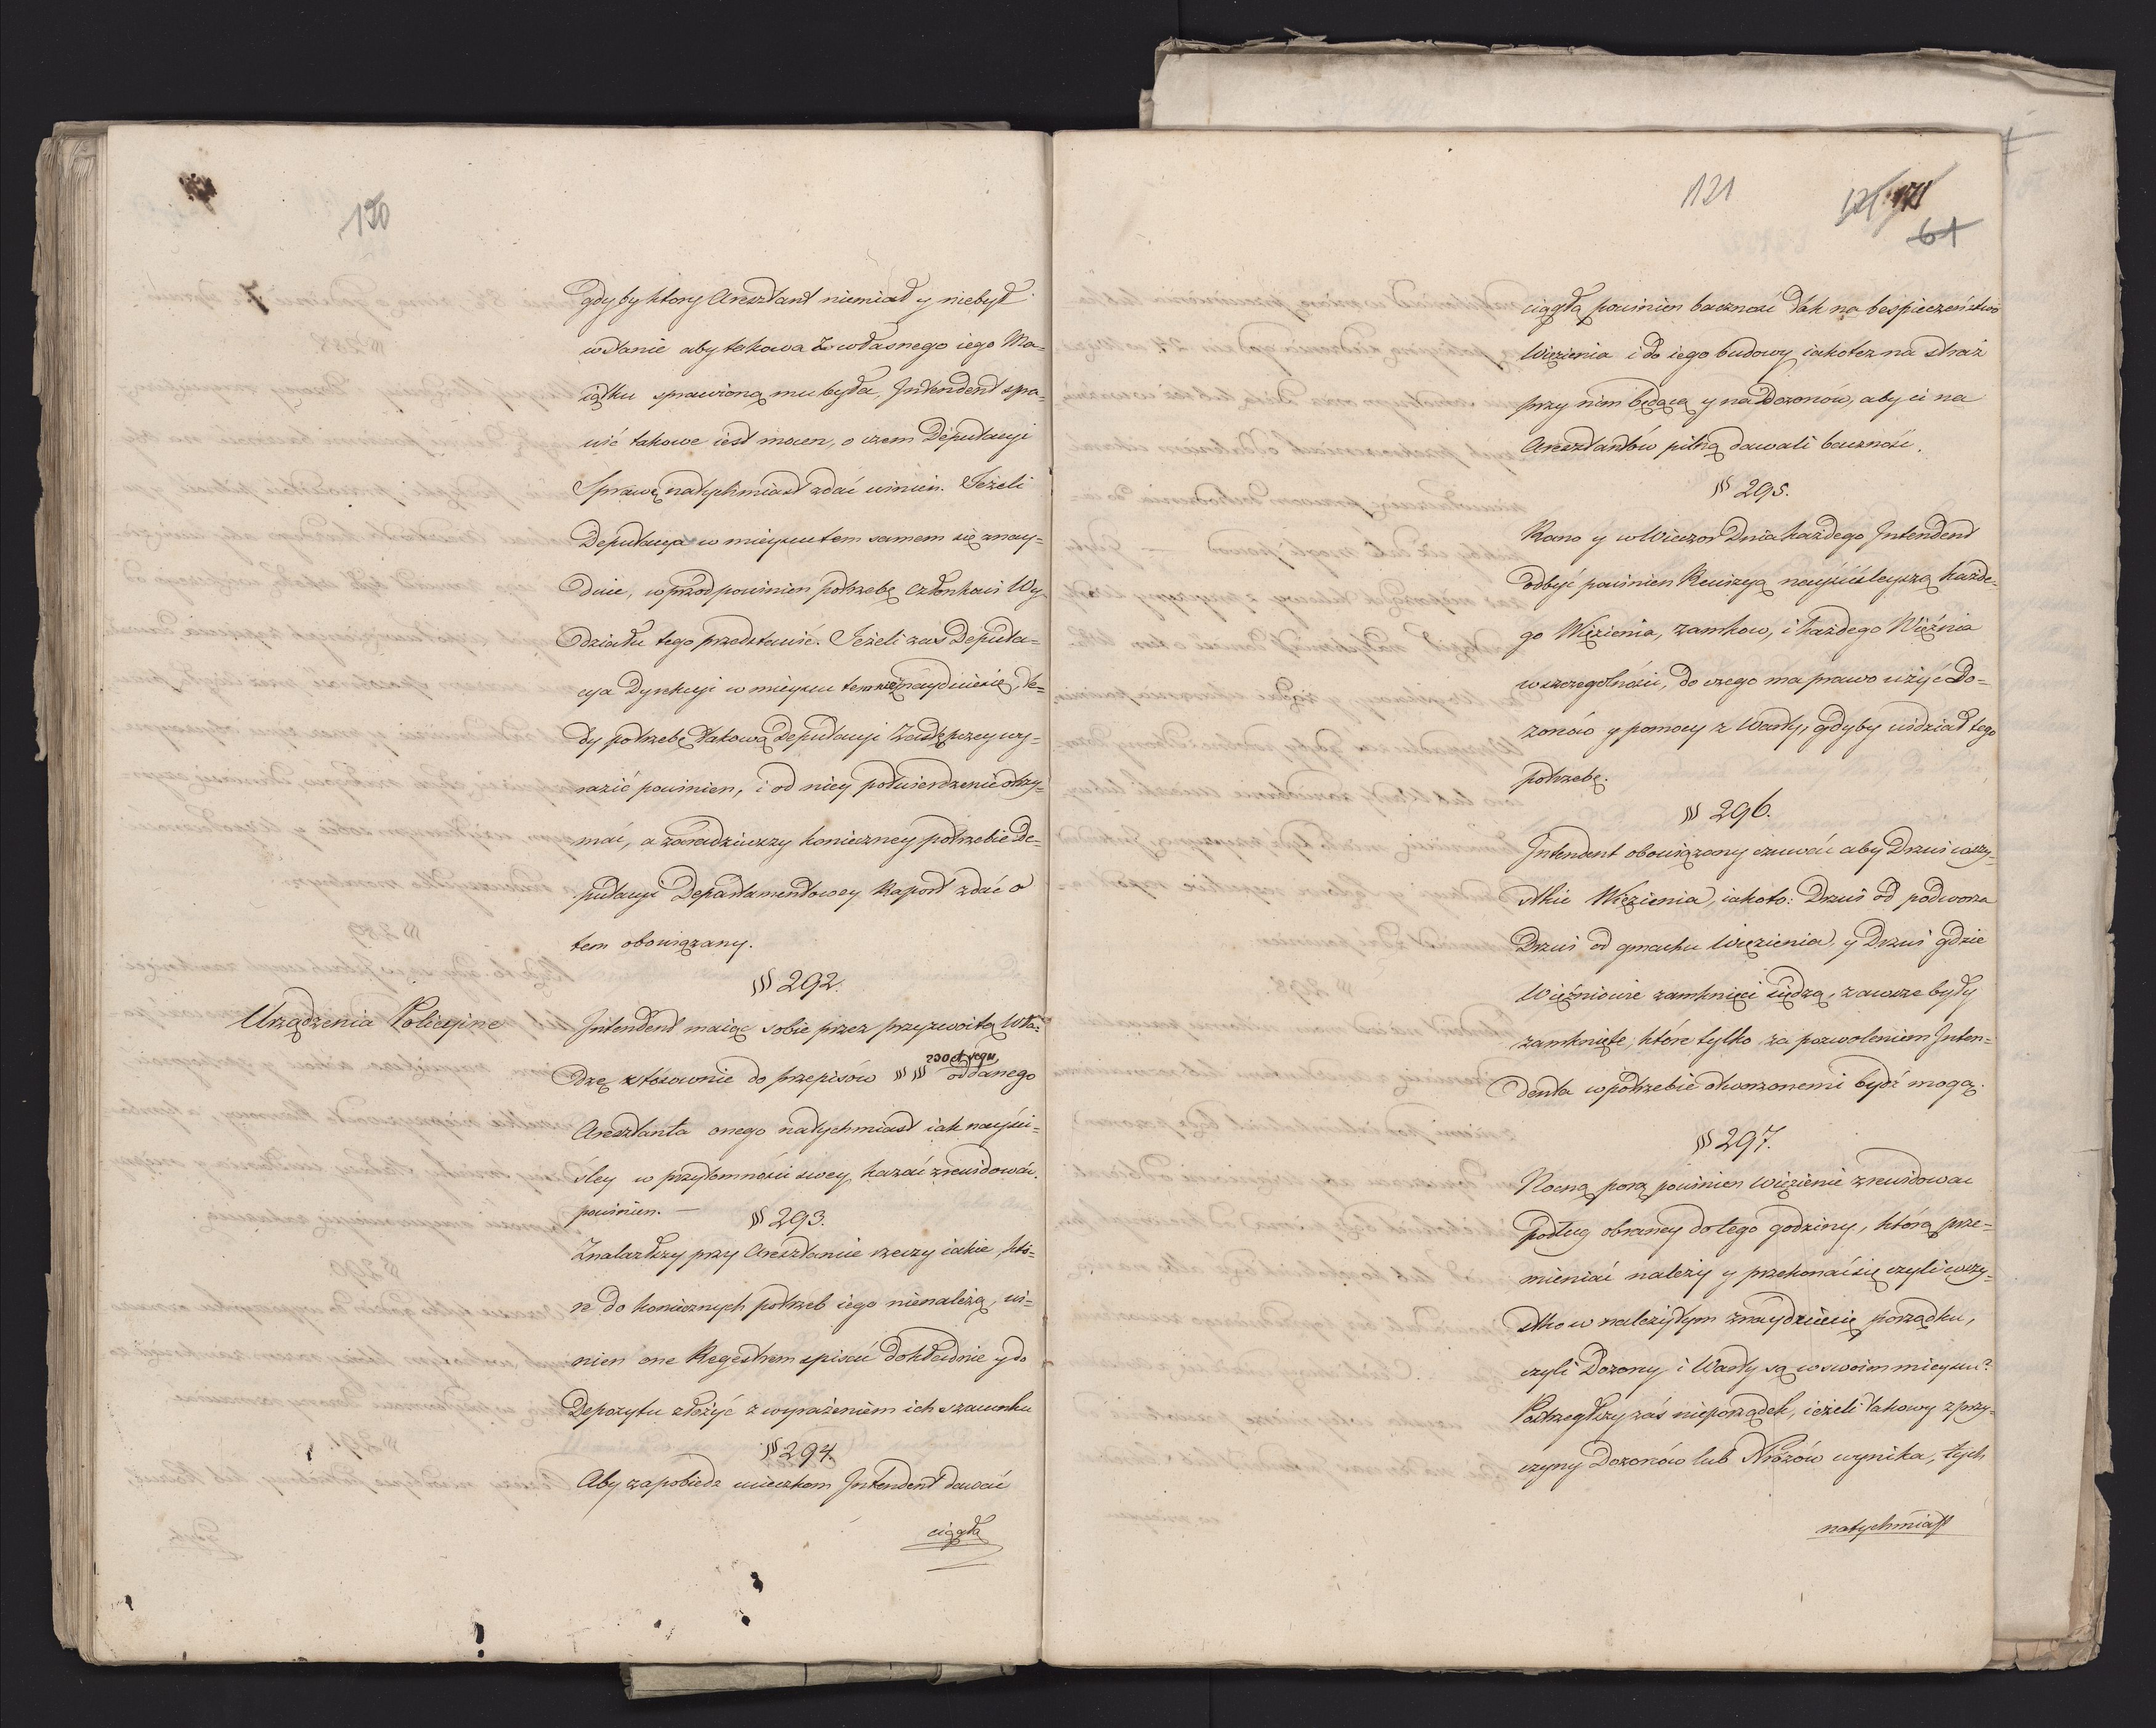 120
gdyby ktory Aresztant niemiał y niebył
wstanie aby takowa z własnego iego Ma=
iątku sprawioną mu była, Intendent spra=
wić takowe iest mocen, o czem Deputacyi
Sprawę natychmiast zdać winien. Jeżeli
Deputacya w mieyscu tem samem się znay=
duie, wprzod powinien potrzebę członkowi Wy=
działu tego przedstawić. Jeżeli zas Deputa=
cya Dyrekcyi w mieyscu tem nieznayduiesię, te=
dy potrzebę takową Deputacyi Zastępczey wy=
razić powinien, i od niey potwierdzenie otrzy=
mać, a zaradziwszy konieczney potrzebie De=
putacyi Departamentowey Raport zdać o
tem obowiązany.
§§ 292.
Urządzenia Policyjne
Intendent maiąc sobie przez przyzwoitą Wła=
dzę stósownie do przepisów §§ §§ 200 et sequ, oddanego
Aresztanta onego natychmiast iak nayści=
śley w przytomności swey kazać zrewidować
powinien. —
§ 293.
Znalazłszy przy Aresztancie rzeczy iakie, któ=
re do koniecznych potrzeb iego nienależą, wi=
nien one Regestrem spisać dokładnie y do
Depozytu złożyć z wyrażeniem ich szacunku
§ 294.
Aby zapobiedz ucieczkom Intendent dawać
ciągłą
121
121 171
61
ciągłą powinien baczność tak na bespieczeństwo
Więzienia i do iego budowy iakotez na straż
przy nim będącą y na Dozorców, aby ci na
Aresztantów pilną dawali baczność.
§§ 295.
Rano y w Wieczor Dnia każdego Intendent
odbyć powinien Rewizyą nayściśleyszą każde=
go Więzienia, zamkow, i każdego Więźnia
w szczególności, do czego ma prawo użyć Do=
zorców y pomocy z Warty, gdyby widział tego
potrzebę.
§§ 296.
Intendent obowiązany czuwać aby Drzwi wszy=
stkie Więzienia, iakoto: Drzwi od podworza
Drzwi od gmachu Więzienia, y Drzwi gdzie
Więźniowie zamknięci siędzą, zawsze były
zamknięte, które tylko za pozwoleniem Inten=
denta w potrzebie otworzonemi bydź mogą.
§§ 297.
Nocną porą powinien więzienie zrewidować
Podług obraney do tego godziny, którą prze=
mieniać należy y przekonać się czyli wszy=
stko w należytym znayduiesię porządku,
czyli Dozorcy i Warty są w swoim mieyscu?
Postrzegłszy zaś nieporządek, ieżeli takowy z przy=
czyny Dozorców lub Stróżów wynika, tych
natychmiast